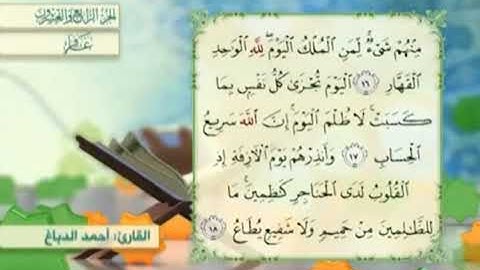 الجزء الرابع والعشرون
غافر
مِنْهُمْ شَىْءٌ ۚ لِّمَنِ الْمُلْكُ الْيَوْمَ ۖ لِلَّهِ الْوَاحِدِ
الْقَهَّارِ ١٦ الْيَوْمَ تُجْزَىٰ كُلُّ نَفْسٍۭ بِمَا
كَسَبَتْ ۚ لَا ظُلْمَ الْيَوْمَ ۚ إِنَّ اللَّهَ سَرِيعُ
الْحِسَابِ ١٧ وَأَنذِرْهُمْ يَوْمَ الْآزِفَةِ إِذِ
الْقُلُوبُ لَدَى الْحَنَاجِرِ كَاظِمِينَ ۚ مَا
لِلظَّالِمِينَ مِنْ حَمِيمٍ وَلَا شَفِيعٍ يُطَاعُ ١٨
القارئ: أحمد الدباغ